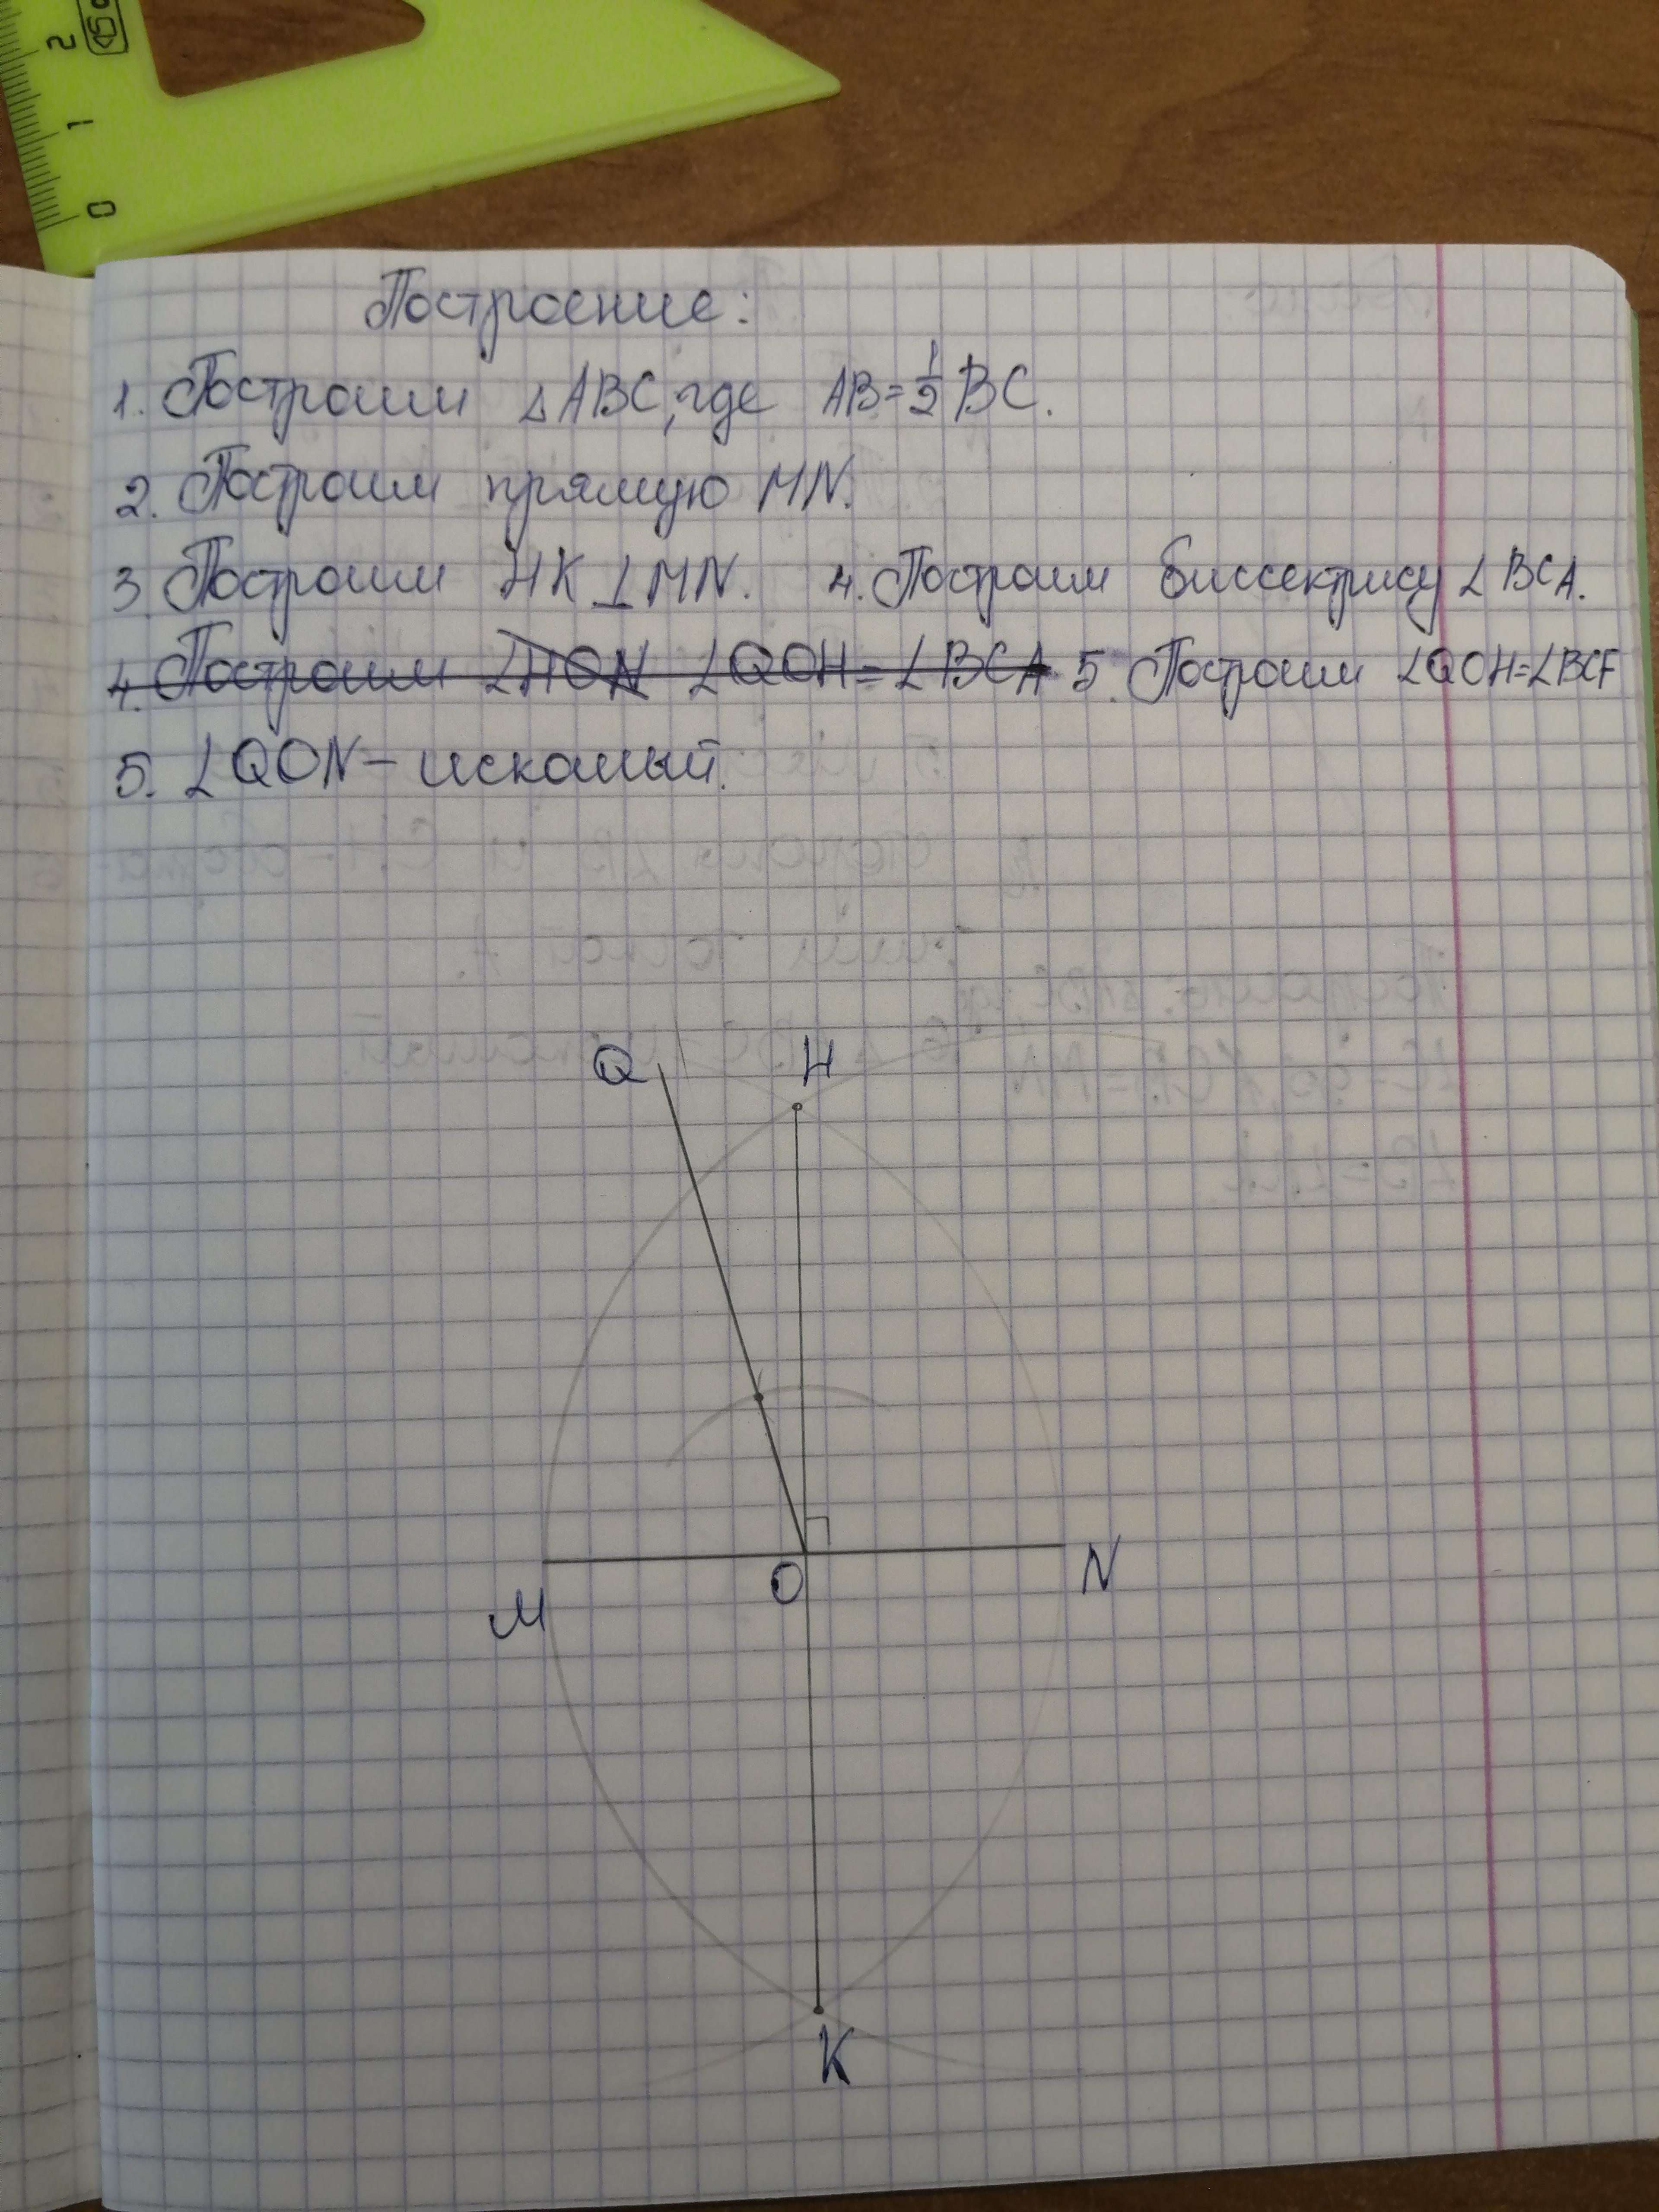 2
1
0
Построение:
1. Построим △ABC, где AB=1/2 BC.
2. Построим прямую MN.
3 Построим HK⊥MN. 4. Построим биссектрису ∠BCA.
4. Построим ∠HON ∠QOH=∠BCA 5. Построим ∠QOH=∠BCF
5. ∠QON – искомый.
Q H
M O N
K